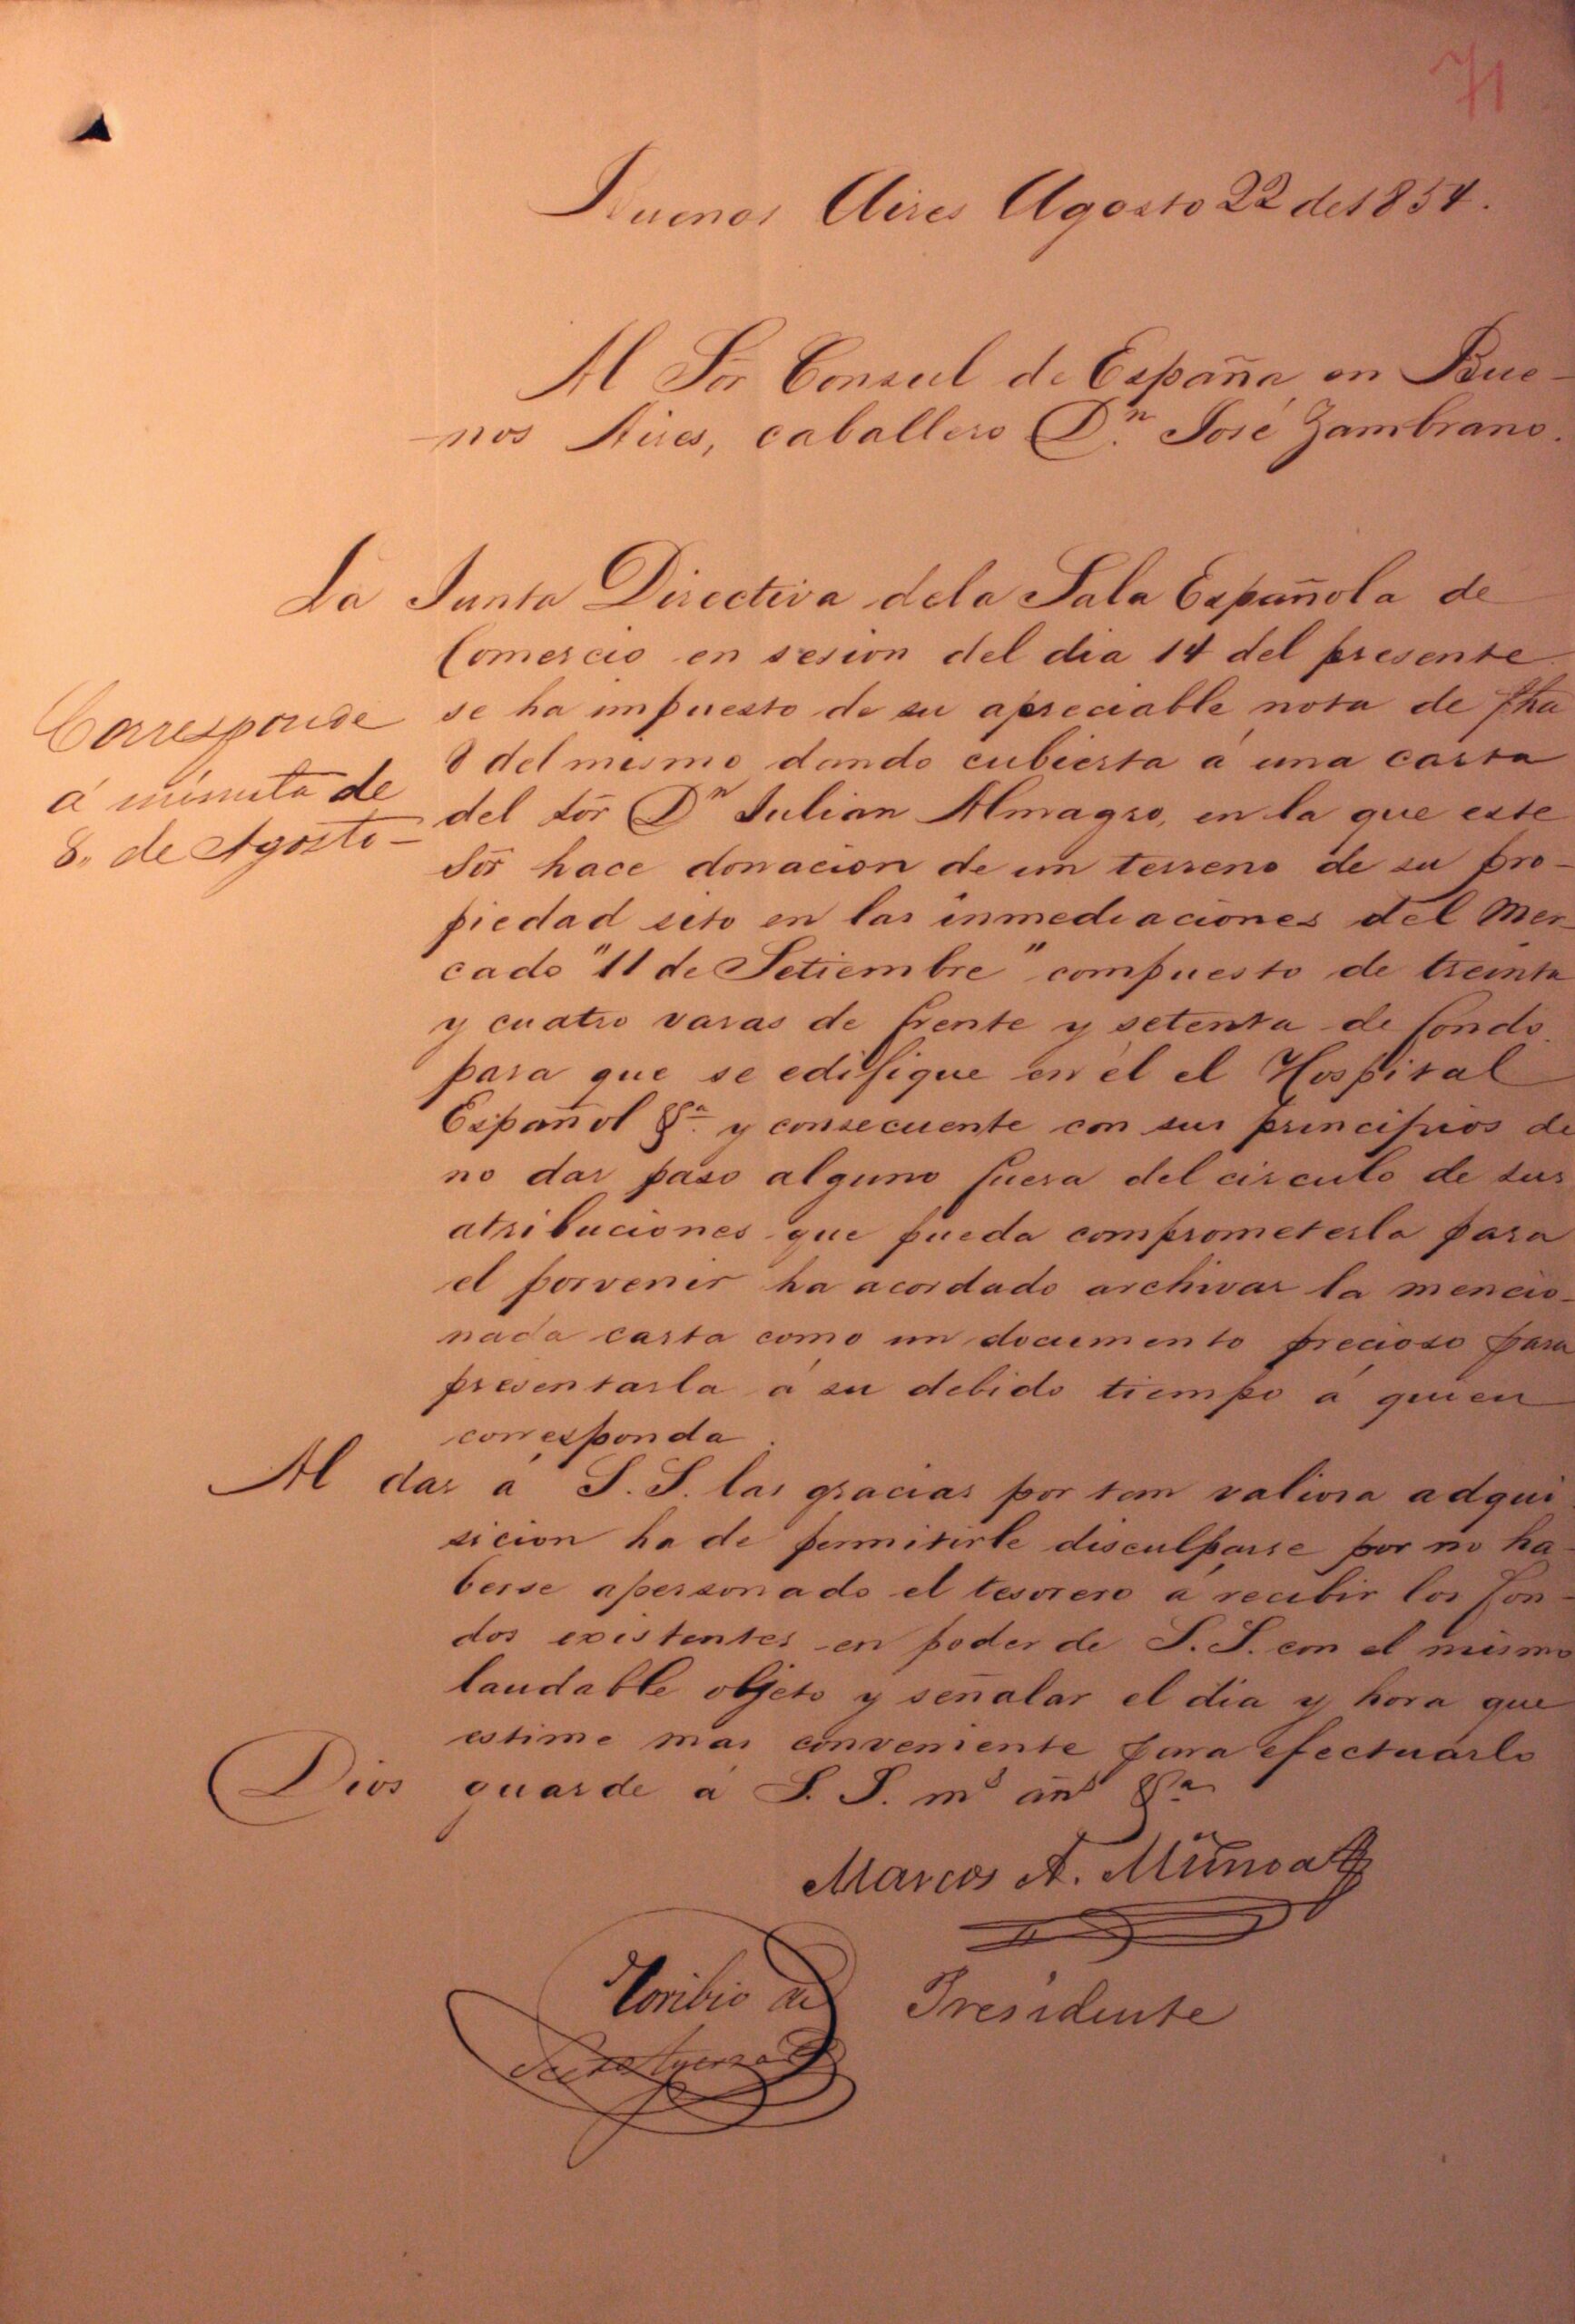 71
Buenos Aires Agosto 22 de 1854.
Al Sõr Consul de España en Bue-
nos Aires, caballero D.ⁿ José Zambrano.
La Junta Directiva dela Sala Española de
Comercio en sesion del dia 14 del presente
se ha impuesto de su apreciable nota de fha
8 del mismo dando cubierta á una carta
del sõr Dⁿ Julian Almagro, en la que este
Sõr hace donacion de un terreno de su pro-
piedad sito en las inmediaciones del Mer-
cado "11 de Setiembre" compuesto de treinta
y cuatro varas de frente y setenta de fondo
para que se edifique en él el Hospital
Español &.ª y consecuente con sus principios de
no dar paso alguno fuera del circulo de sus
atribuciones que pueda comprometerla para
el porvenir ha acordado archivar la mencio-
nada carta como un documento precioso para
presentarla á su debido tiempo á quien
corresponda.
Corresponde
á minuta de
8,, de Agosto-
Al dar á S. S. las gracias por tan valiosa adqui
sicion ha de permitirle disculparse por no ha-
berse apersonado el tesorero á recibir los fon-
dos existentes en poder de S. S. con el mismo
laudable objeto y señalar el dia y hora que
estime mas conveniente para efectuarlo
Dios guarde á S. S. mˢ añˢ &ª
Marcos A. Muñoa
Presidente
Toribio de